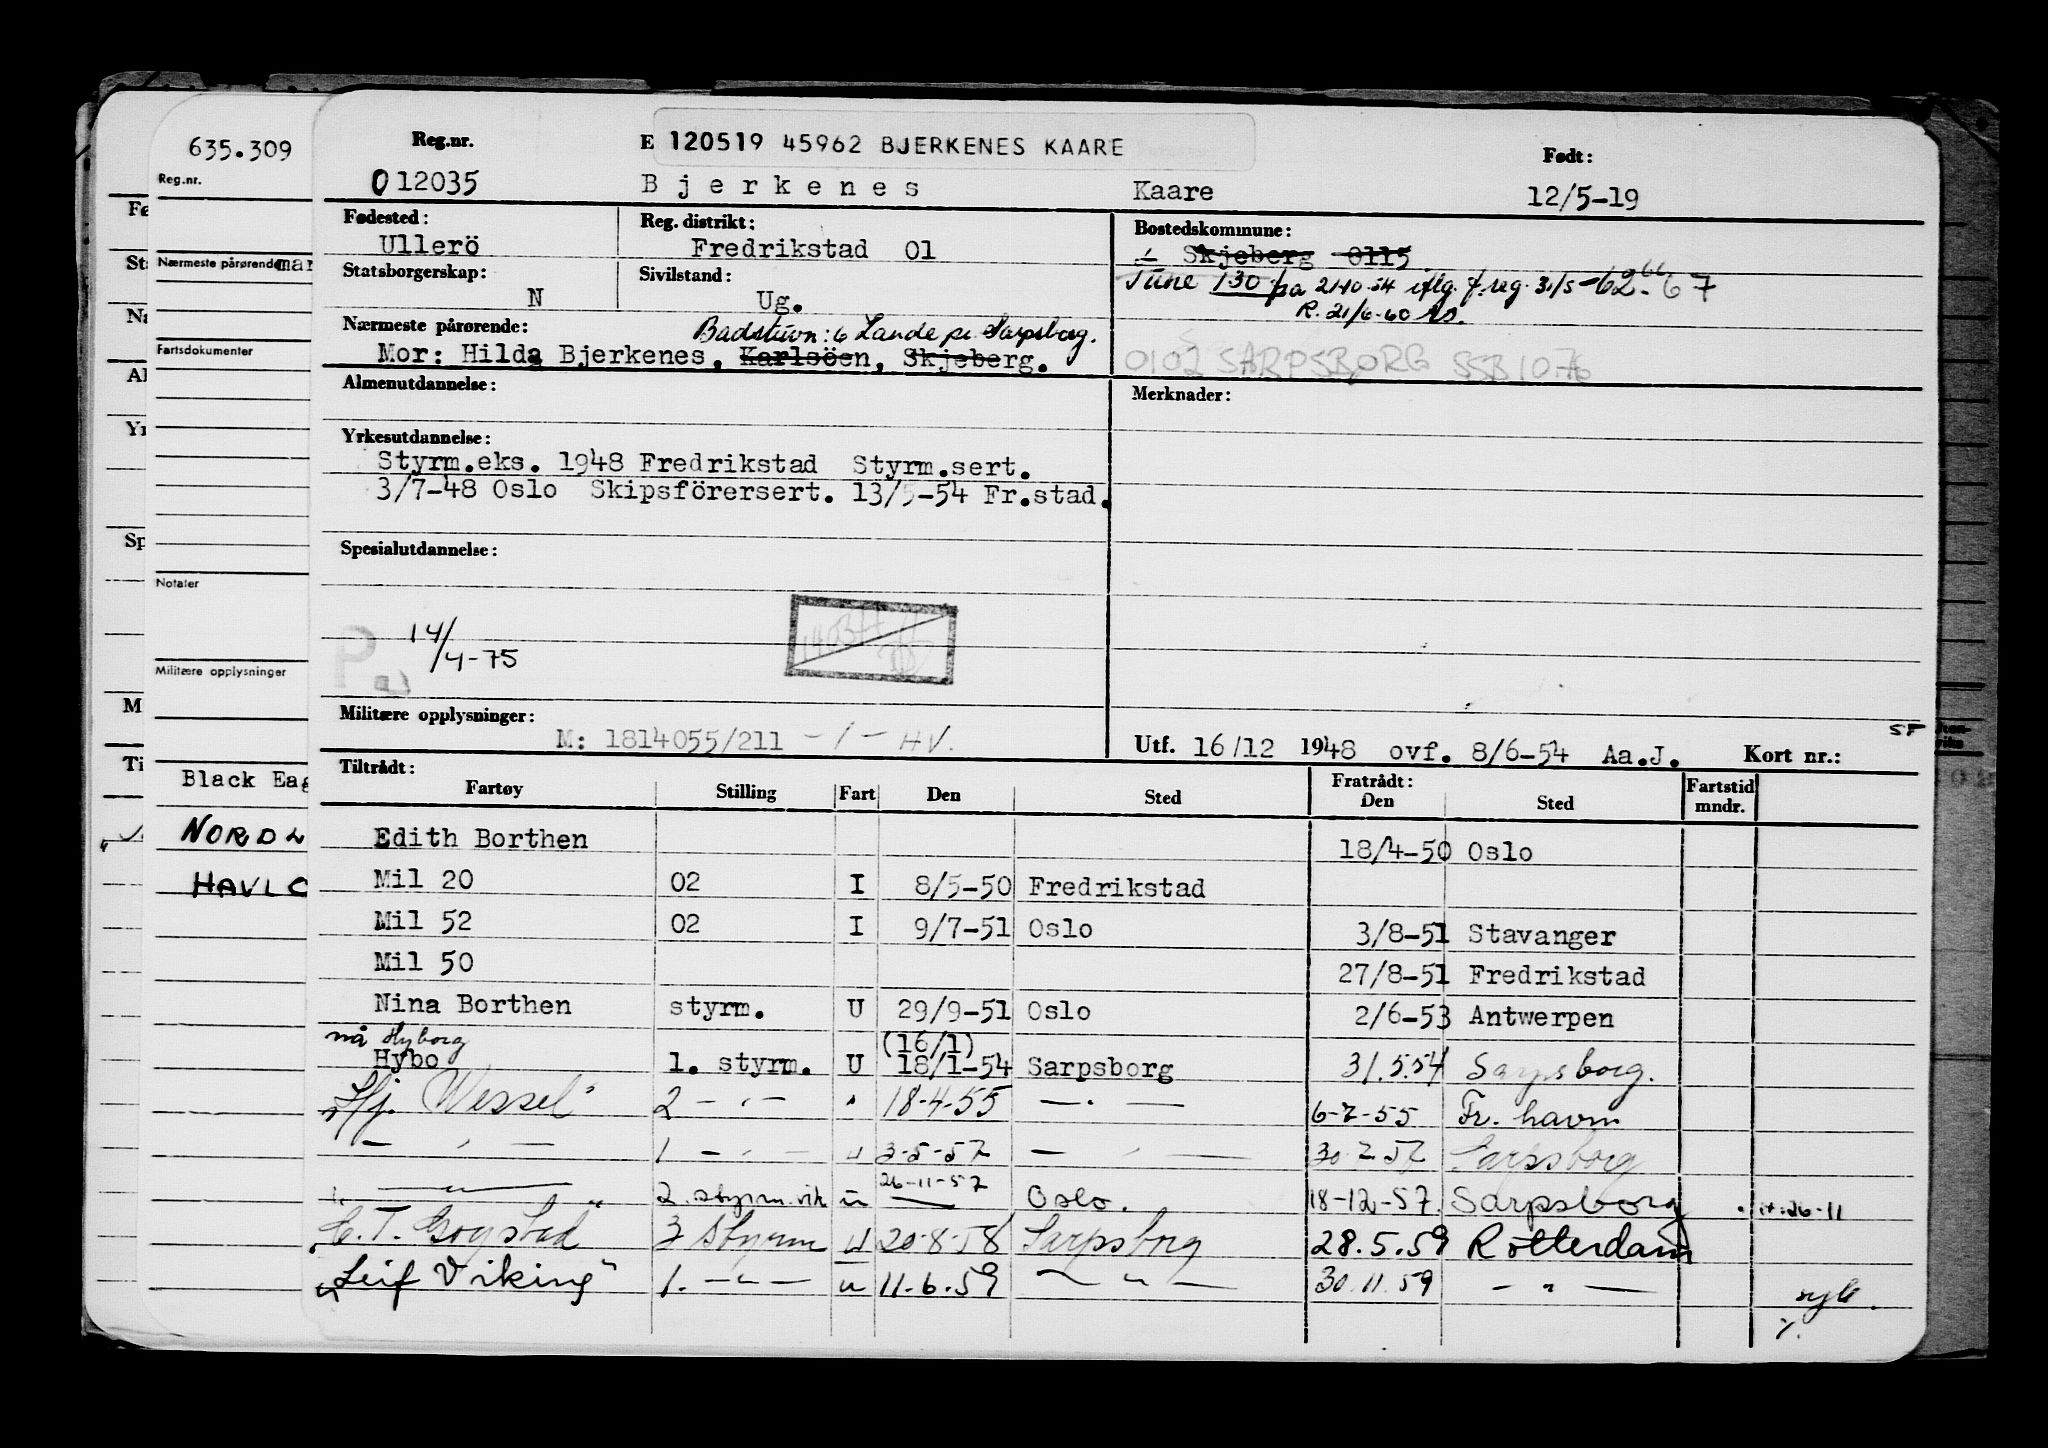 635.309
Reg.nr.
Nærmeste pårørende
mar
Fartsdokumenter
Notater
Militære opplysninger
Black Eag
NORDL
HAVLO
Reg.nr.
E 120519 45962 BJERKENES KAARE
Født:
012035 Bjerkenes Kaare 12/5-19
Fødested: Reg. distrikt: Bostedskommune:
Ullerö Fredrikstad 01 Skjeberg 0115
Statsborgerskap: Sivilstand:
Tune 130 fra 21-10-54 iflg. f.reg. 31/5-62 66 67
N Ug.
R. 21/6-60
Nærmeste pårørende: Badstuvn: 6 Lande pr. Sarpsborg.
Mor: Hilda Bjerkenes, Karlsöen, Skjeberg.
0102 SARPSBORG SSB 10.76
Almenutdannelse: Merknader:
Yrkesutdannelse:
Styrm.eks. 1948 Fredrikstad Styrm.sert.
3/7-48 Oslo Skipsförersert. 13/5-54 Fr.stad.
Spesialutdannelse:
14/4-75
Militære opplysninger:
M: 1814055/211 -/- HV.
Utf. 16/12 1948 ovf. 8/6-54 Aa.J. Kort nr.: SF
Tiltrådt: Fratrådt: Fartstid mndr.
Fartøy Stilling Fart Den Sted Den Sted
Edith Borthen 18/4-50 Oslo
Mil 20 02 I 8/5-50 Fredrikstad
Mil 52 02 I 9/7-51 Oslo 3/8-51 Stavanger
Mil 50 27/8-51 Fredrikstad
Nina Borthen styrm. U 29/9-51 Oslo 2/6-53 Antwerpen
nå Hyborg (16/1)
Hybo 1. styrm. U 18/1-54 Sarpsborg 31.5.54 Sarpsborg.
Hj. Wessel" 2 - " - " 18-4-55 - " - 6-7-55 Fr. havn
- " - 1 - " - u 3-5-57 - " - 30 7 57 Sarpsborg
26-11-57
" - " - " 2. styrm. vik u Oslo. 18-12-57. Sarpsborg it: 26-11
"C. T. Gogstad" 3 Styrm U 20-8-58 Sarpsborg 28.5.59 Rotterdam
"Leif Viking" 1. - " - u 11-6.59 - " - 30.11.59 - " - syk.